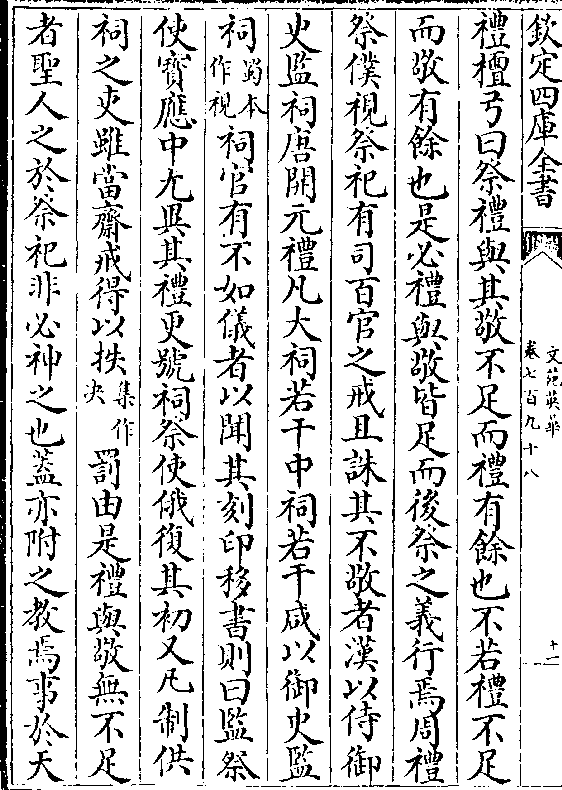 欽定四庫全書
文苑英華
卷七百九十八
十一
禮檀弓曰祭禮與其敬不足而禮有餘也不若禮不足
而敬有餘也是必禮與敬皆足而後祭之義行焉周禮
祭僕視祭祀有司百官之戒且誅其不敬者漢以侍御
史監祠唐開元禮凡大祠若干中祠若干咸以御史監
祠蜀本作視祠官有不如儀者以聞其刻印移書則曰監祭
使寶應中尤異其禮更號祠祭使俄復其初又凡制供
祠之吏雖當齋戒得以抶集作决罰由是禮與敬無不足
者聖人之於祭祀非必神之也蓋亦附之教焉事於天